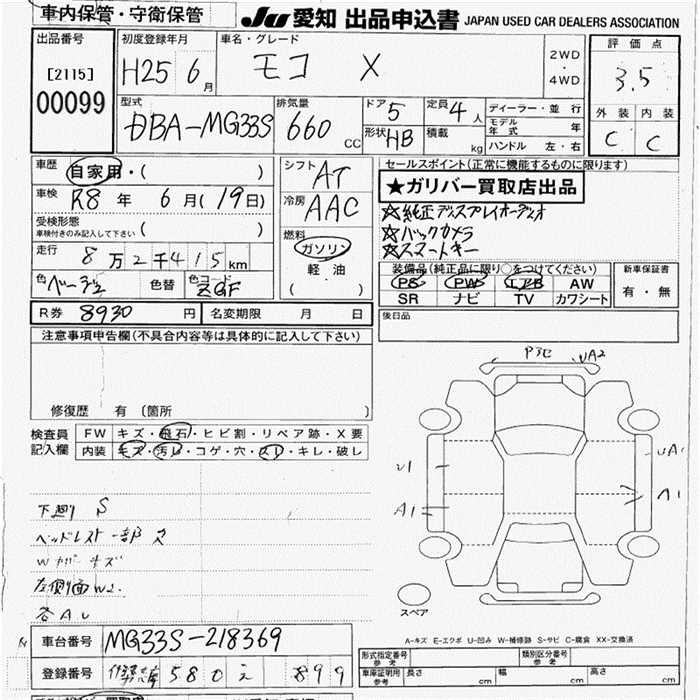 車内保管・守衛保管
JU 愛知 出品申込書 JAPAN USED CAR DEALERS ASSOCIATION
出品番号
[2115]
00099
初度登録年月
H25 6月
車名・グレード
モコ X
2WD
・
4WD
評価点
3.5
外装 内装
C C
型式
DBA-MG33S
排気量
660 CC
ドア 5
形状 HB
定員 4人
積載 kg
ディーラー・並行
モデル年式 年
ハンドル 左・右
車歴 自家用・( )
車検 R8年 6月(19日)
受検形態
車検付きのみ記入して下さい ( )
走行 8万2千415km
色 ベージュ 色替 色コード ZGF
シフト AT
冷房 AAC
燃料
ガソリン
軽油
( )
セールスポイント(正常に機能するものに限ります)
★ガリバー買取店出品
☆純正ディスプレイオーディオ
☆バックカメラ
☆スマートキー
装備品(純正品に限り○をつけてください)
PS PW エアB AW
SR ナビ TV カワシート
新車保証書
有・無
R券 8930円 名変期限 月 日
後日品
注意事項申告欄(不具合内容等は具体的に記入して下さい)
修復歴 有 (箇所 )
検査員
記入欄
FW キズ・飛石・ヒビ割・リペア跡・X要
内装 キズ・汚れ・コゲ・穴・スレ・キレ・破レ
下廻り S
ヘッドレスト一部ス
左側面W2.
各AU
UA2
U1
A1
UA1
A1
スペア
A-キズ E-エクボ U-凹み W-補修跡 S-サビ C-腐食 XX-交換済
車台番号 MG33S-218369
登録番号 580 え 899
形式指定番号
参考
類別区分番号
参考
車庫証明用
参考
長さ cm 幅 cm 高さ cm